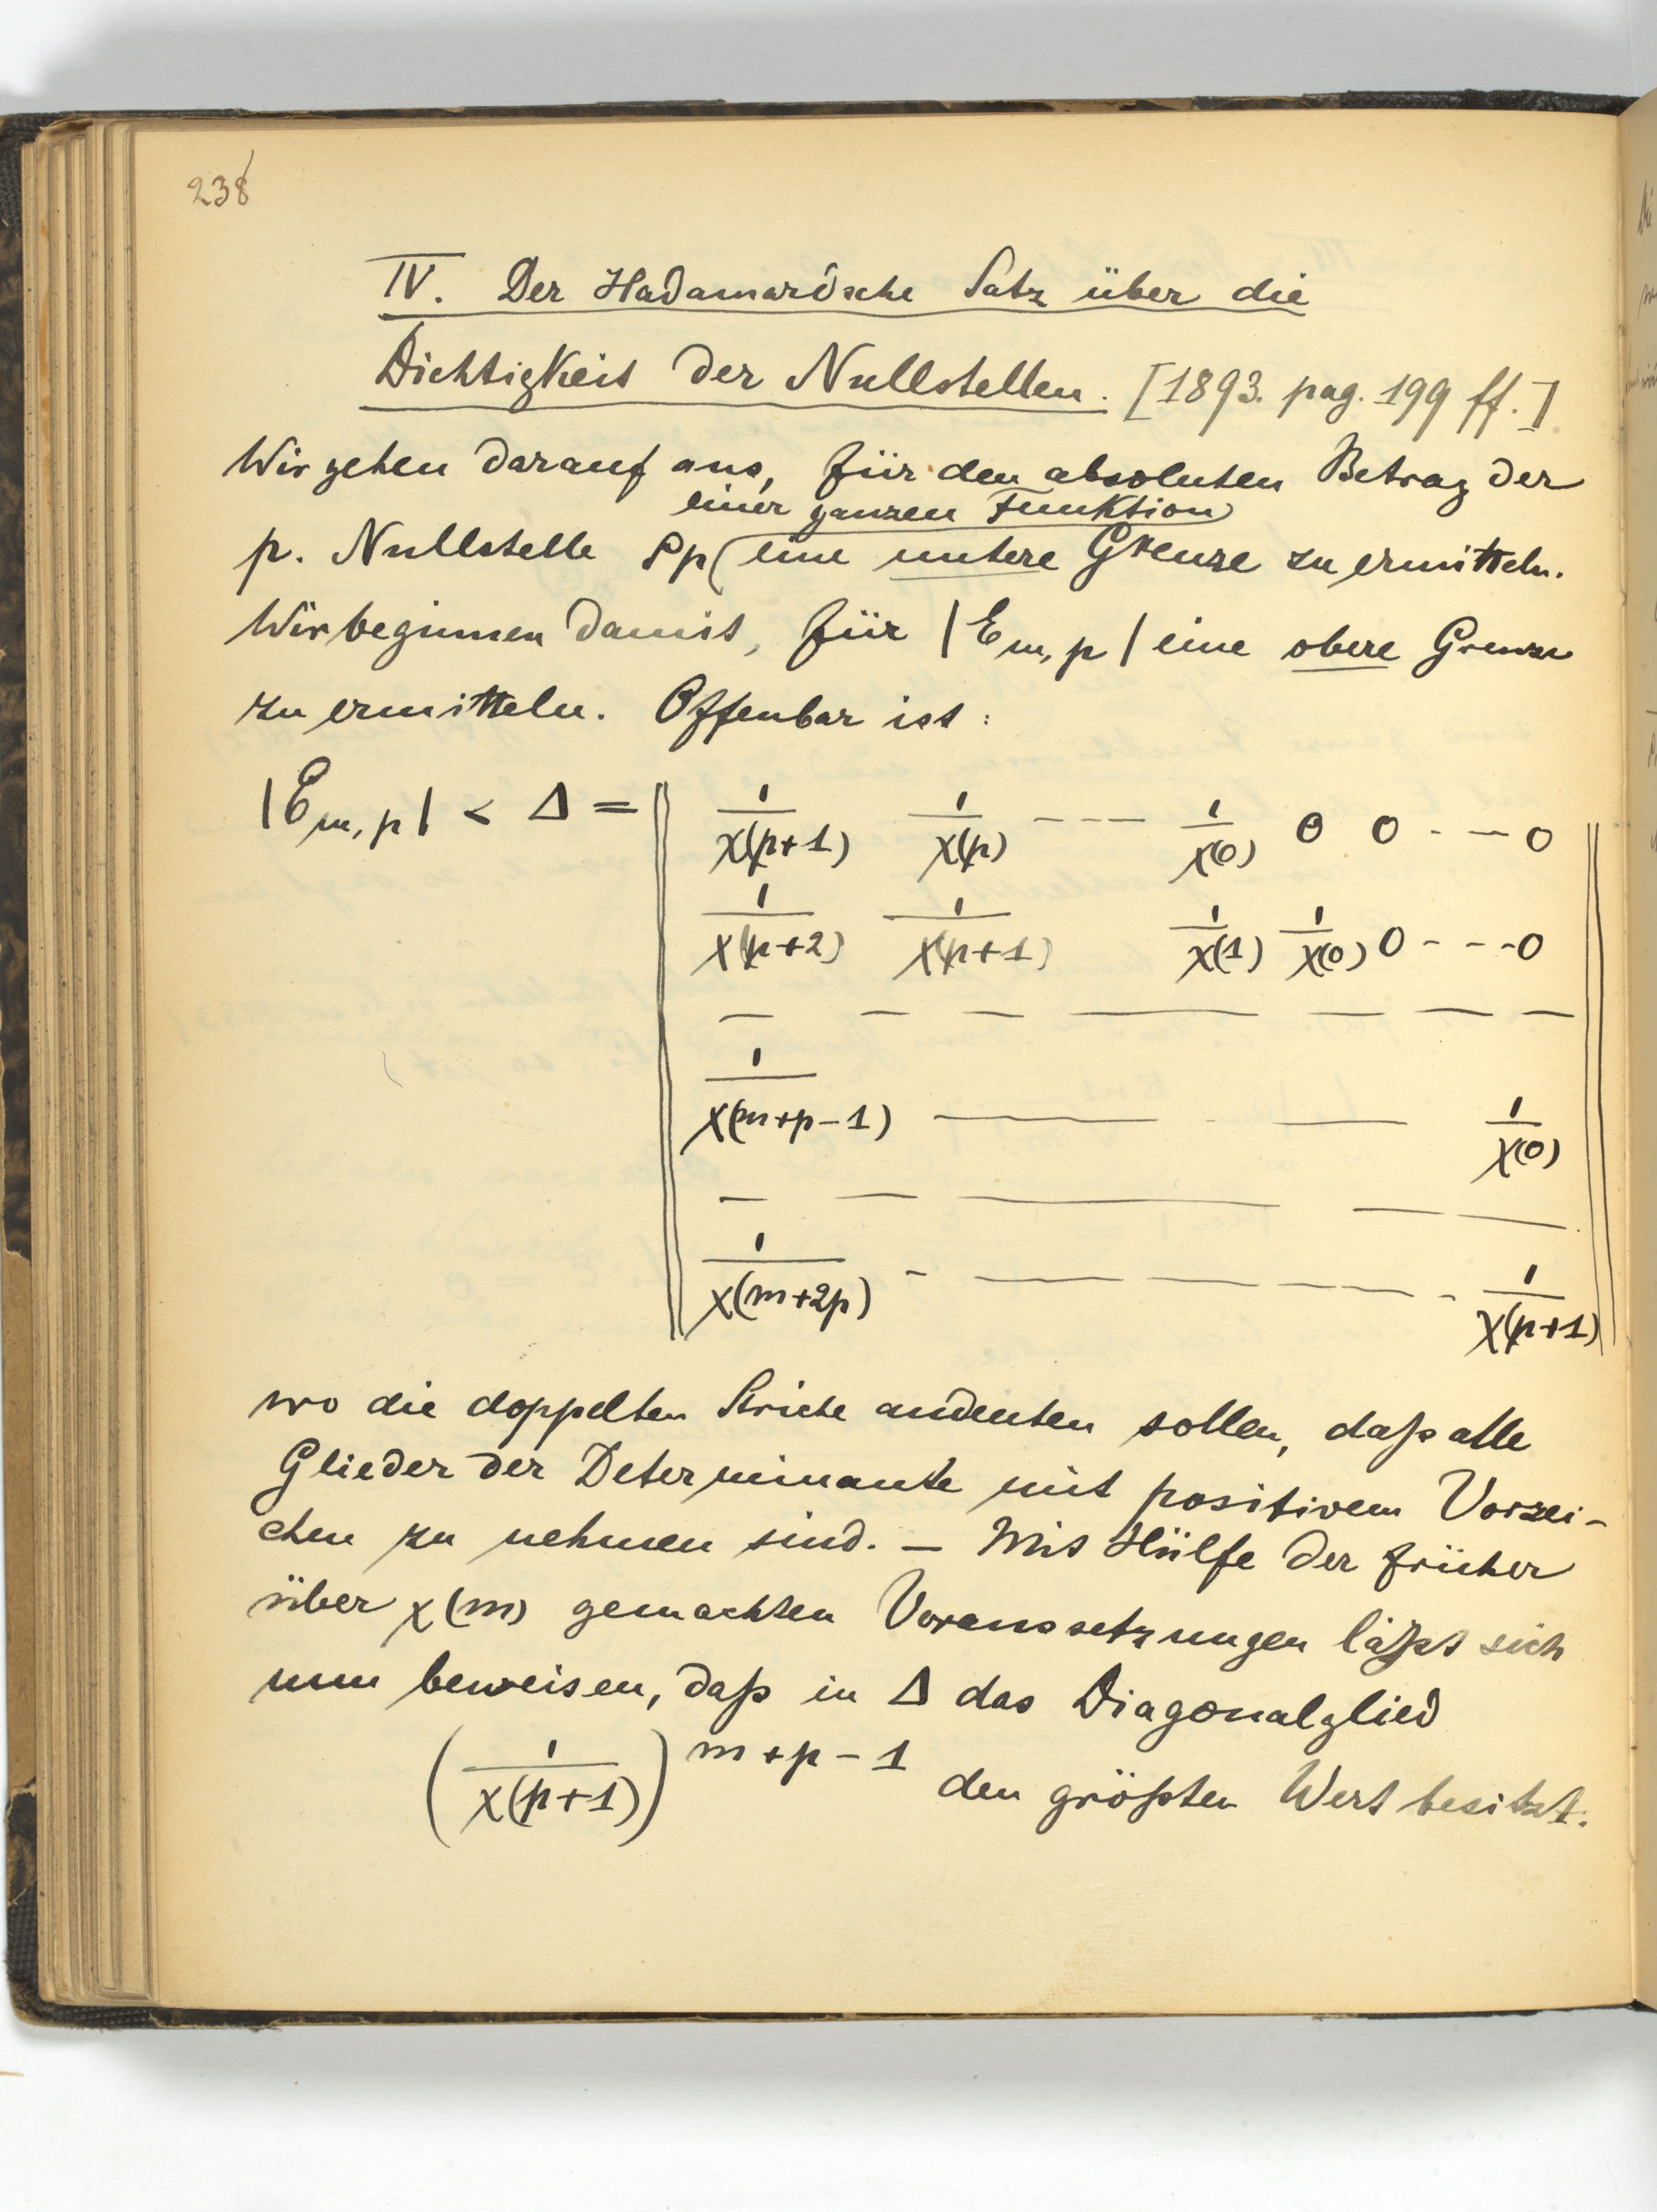 238
IV. Der Hadamardsche Satz über die
Dichtigkeit der Nullstellen. [1893. pag. 199 ff.]
Wir gehen darauf aus, für den absoluten Betrag der
einer ganzen Funktion
p. Nullstelle ρp ( eine untere Grenze zu ermitteln.
Wir beginnen damit, für |Em,p| eine obere Grenze
zu ermitteln. Offenbar ist:
|Em,p| < Δ = || 1/χ(p+1) 1/χ(p) --- 1/χ(0) 0 0 --- 0 ||
1/χ(p+2) 1/χ(p+1) 1/χ(1) 1/χ(0) 0 ---0
— — — — — — —
1/χ(m+p-1) — - — 1/χ(0)
— — — — —
1/χ(m+2p) - — — — - 1/χ(p+1)
wo die doppelten Striche andeuten sollen, daß alle
Glieder der Determinante mit positivem Vorzei-
chen zu nehmen sind. — Mit Hülfe der früher
über χ(m) gemachten Voraussetzungen läßt sich
nun beweisen, daß in Δ das Diagonalglied
(1/χ(p+1))^m+p-1 den größten Wert besitzt.